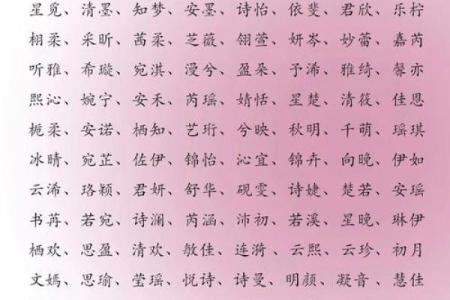 星觅、清墨、知梦、安墨、诗怡、依斐、君欣、乐柠
栩柔、采昕、茜柔、芝薇、翎萱、妍岑、妙蕾、嘉芮
听雅、希璇、宛淇、漫兮、盈朵、予浠、雅绮、馨亦
熙沁、婉宁、安禾、芮瑶、婧恬、星楚、清筱、佳恩
栀柔、安诺、栖知、艺珩、兮映、秋明、千萌、瑶琪
冰晴、宛芷、佐伊、锦怡、沁宜、锦卉、向晚、伊如
云浠、珞颖、君妍、舒华、砚雯、诗婕、楚若、安瑶
书苒、若宛、诗澜、芮涵、沛初、若溪、星晚、琳伊
栖欢、思盈、清欢、敏佳、连漪、云熙、云珍、初月
文嫣、思瑜、莹瑶、悦诗、诗曼、明颜、凝音、慧佳